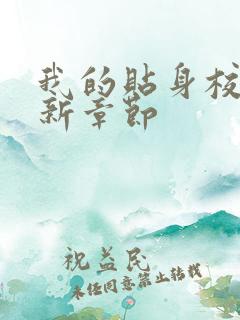 我的貼身校
新章節
祝益民
未经同意禁止转载